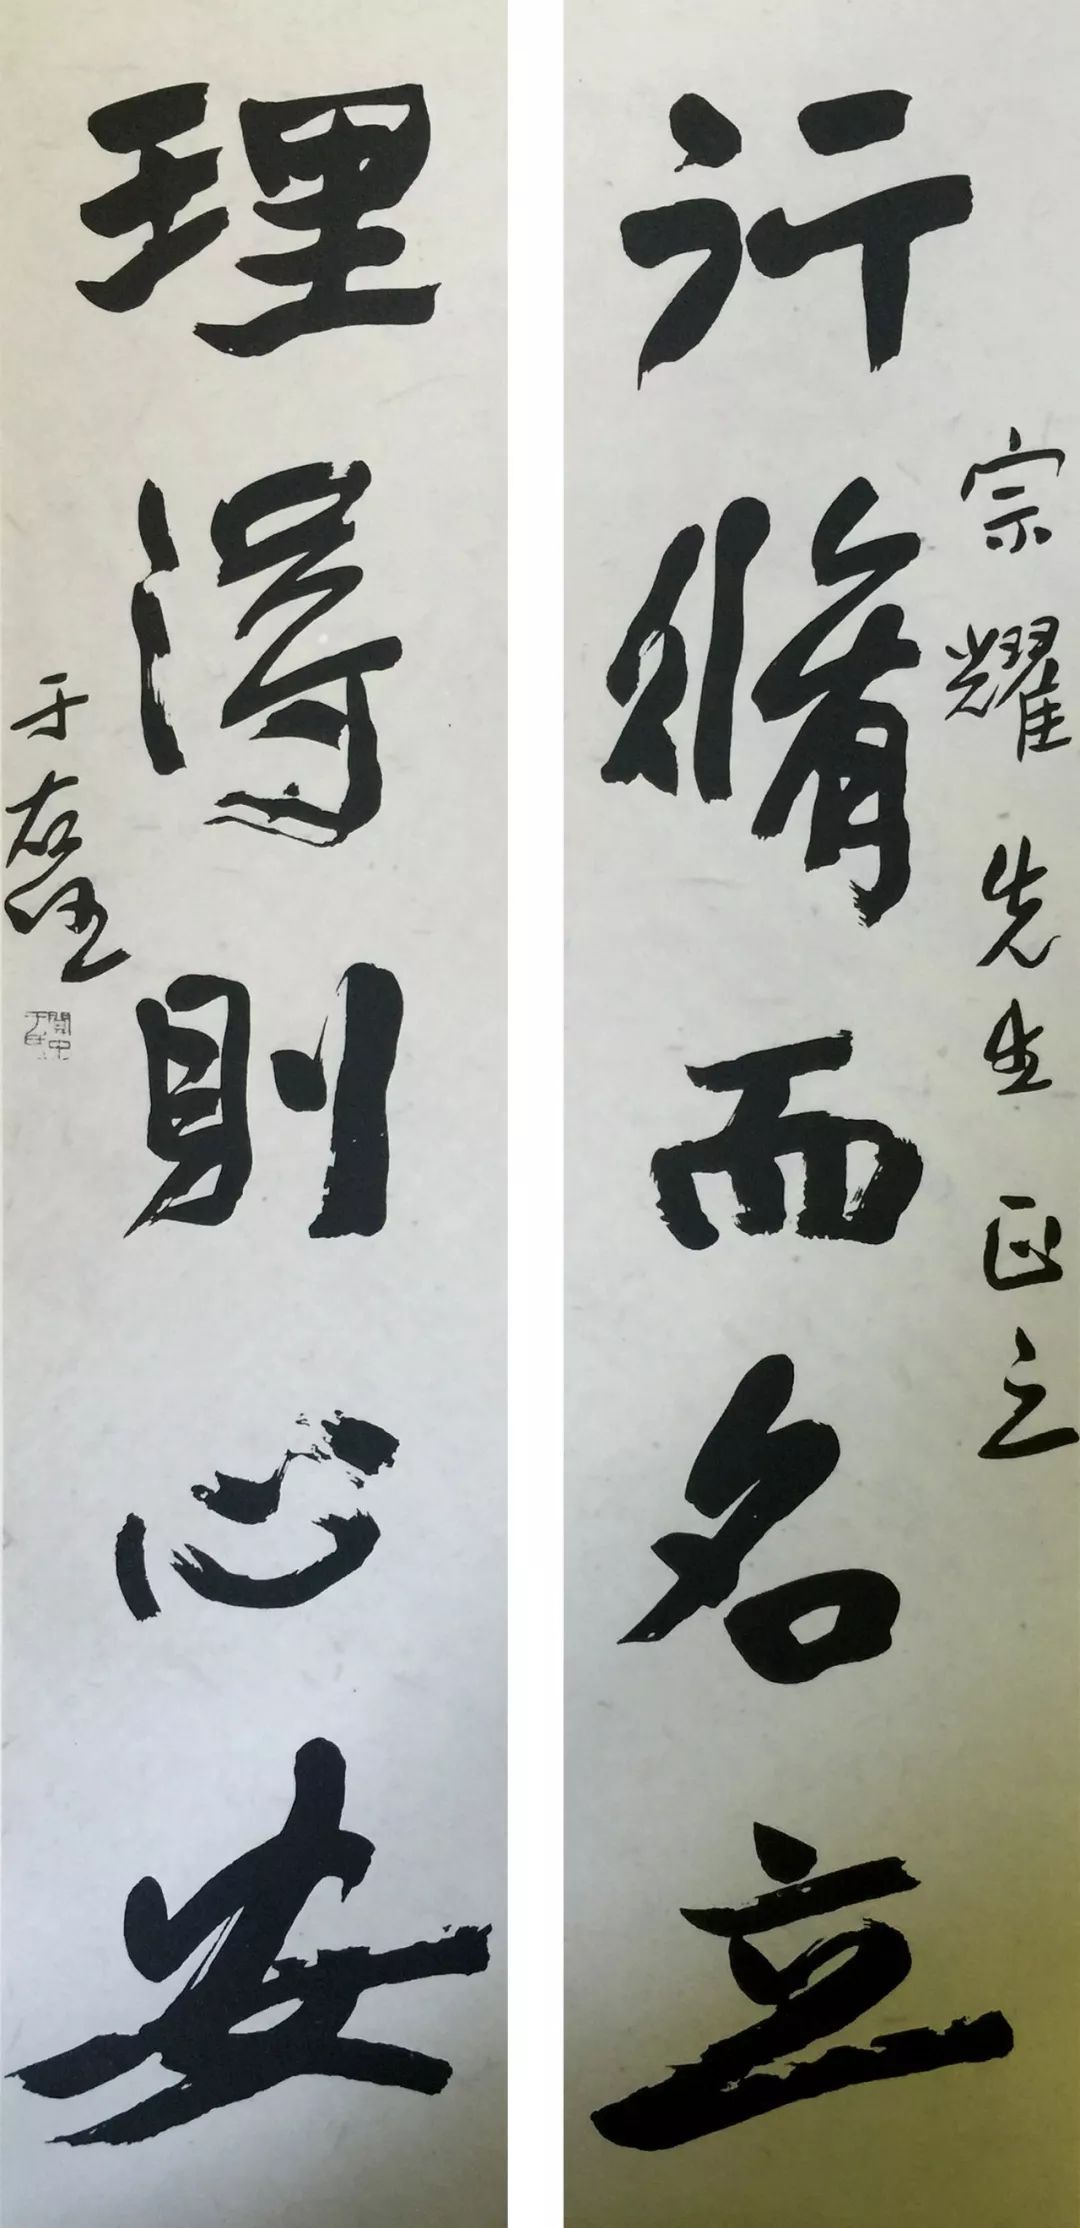 行脩而名立
宗耀先生正之
理得則心安
于右任
關中于氏